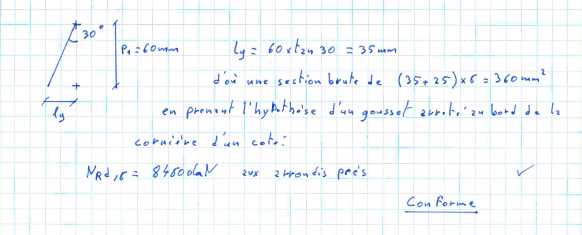 30°
P1 = 60mm
ly = 60 x tan 30 = 35mm
d'où une section brute de (35+25) x 6 = 360 mm²
ly
en prenant l'hypothèse d'un gousset arrêté au bord de la
cornière d'un coté:
NRd,r = 8460daN aux arrondis près
Conforme